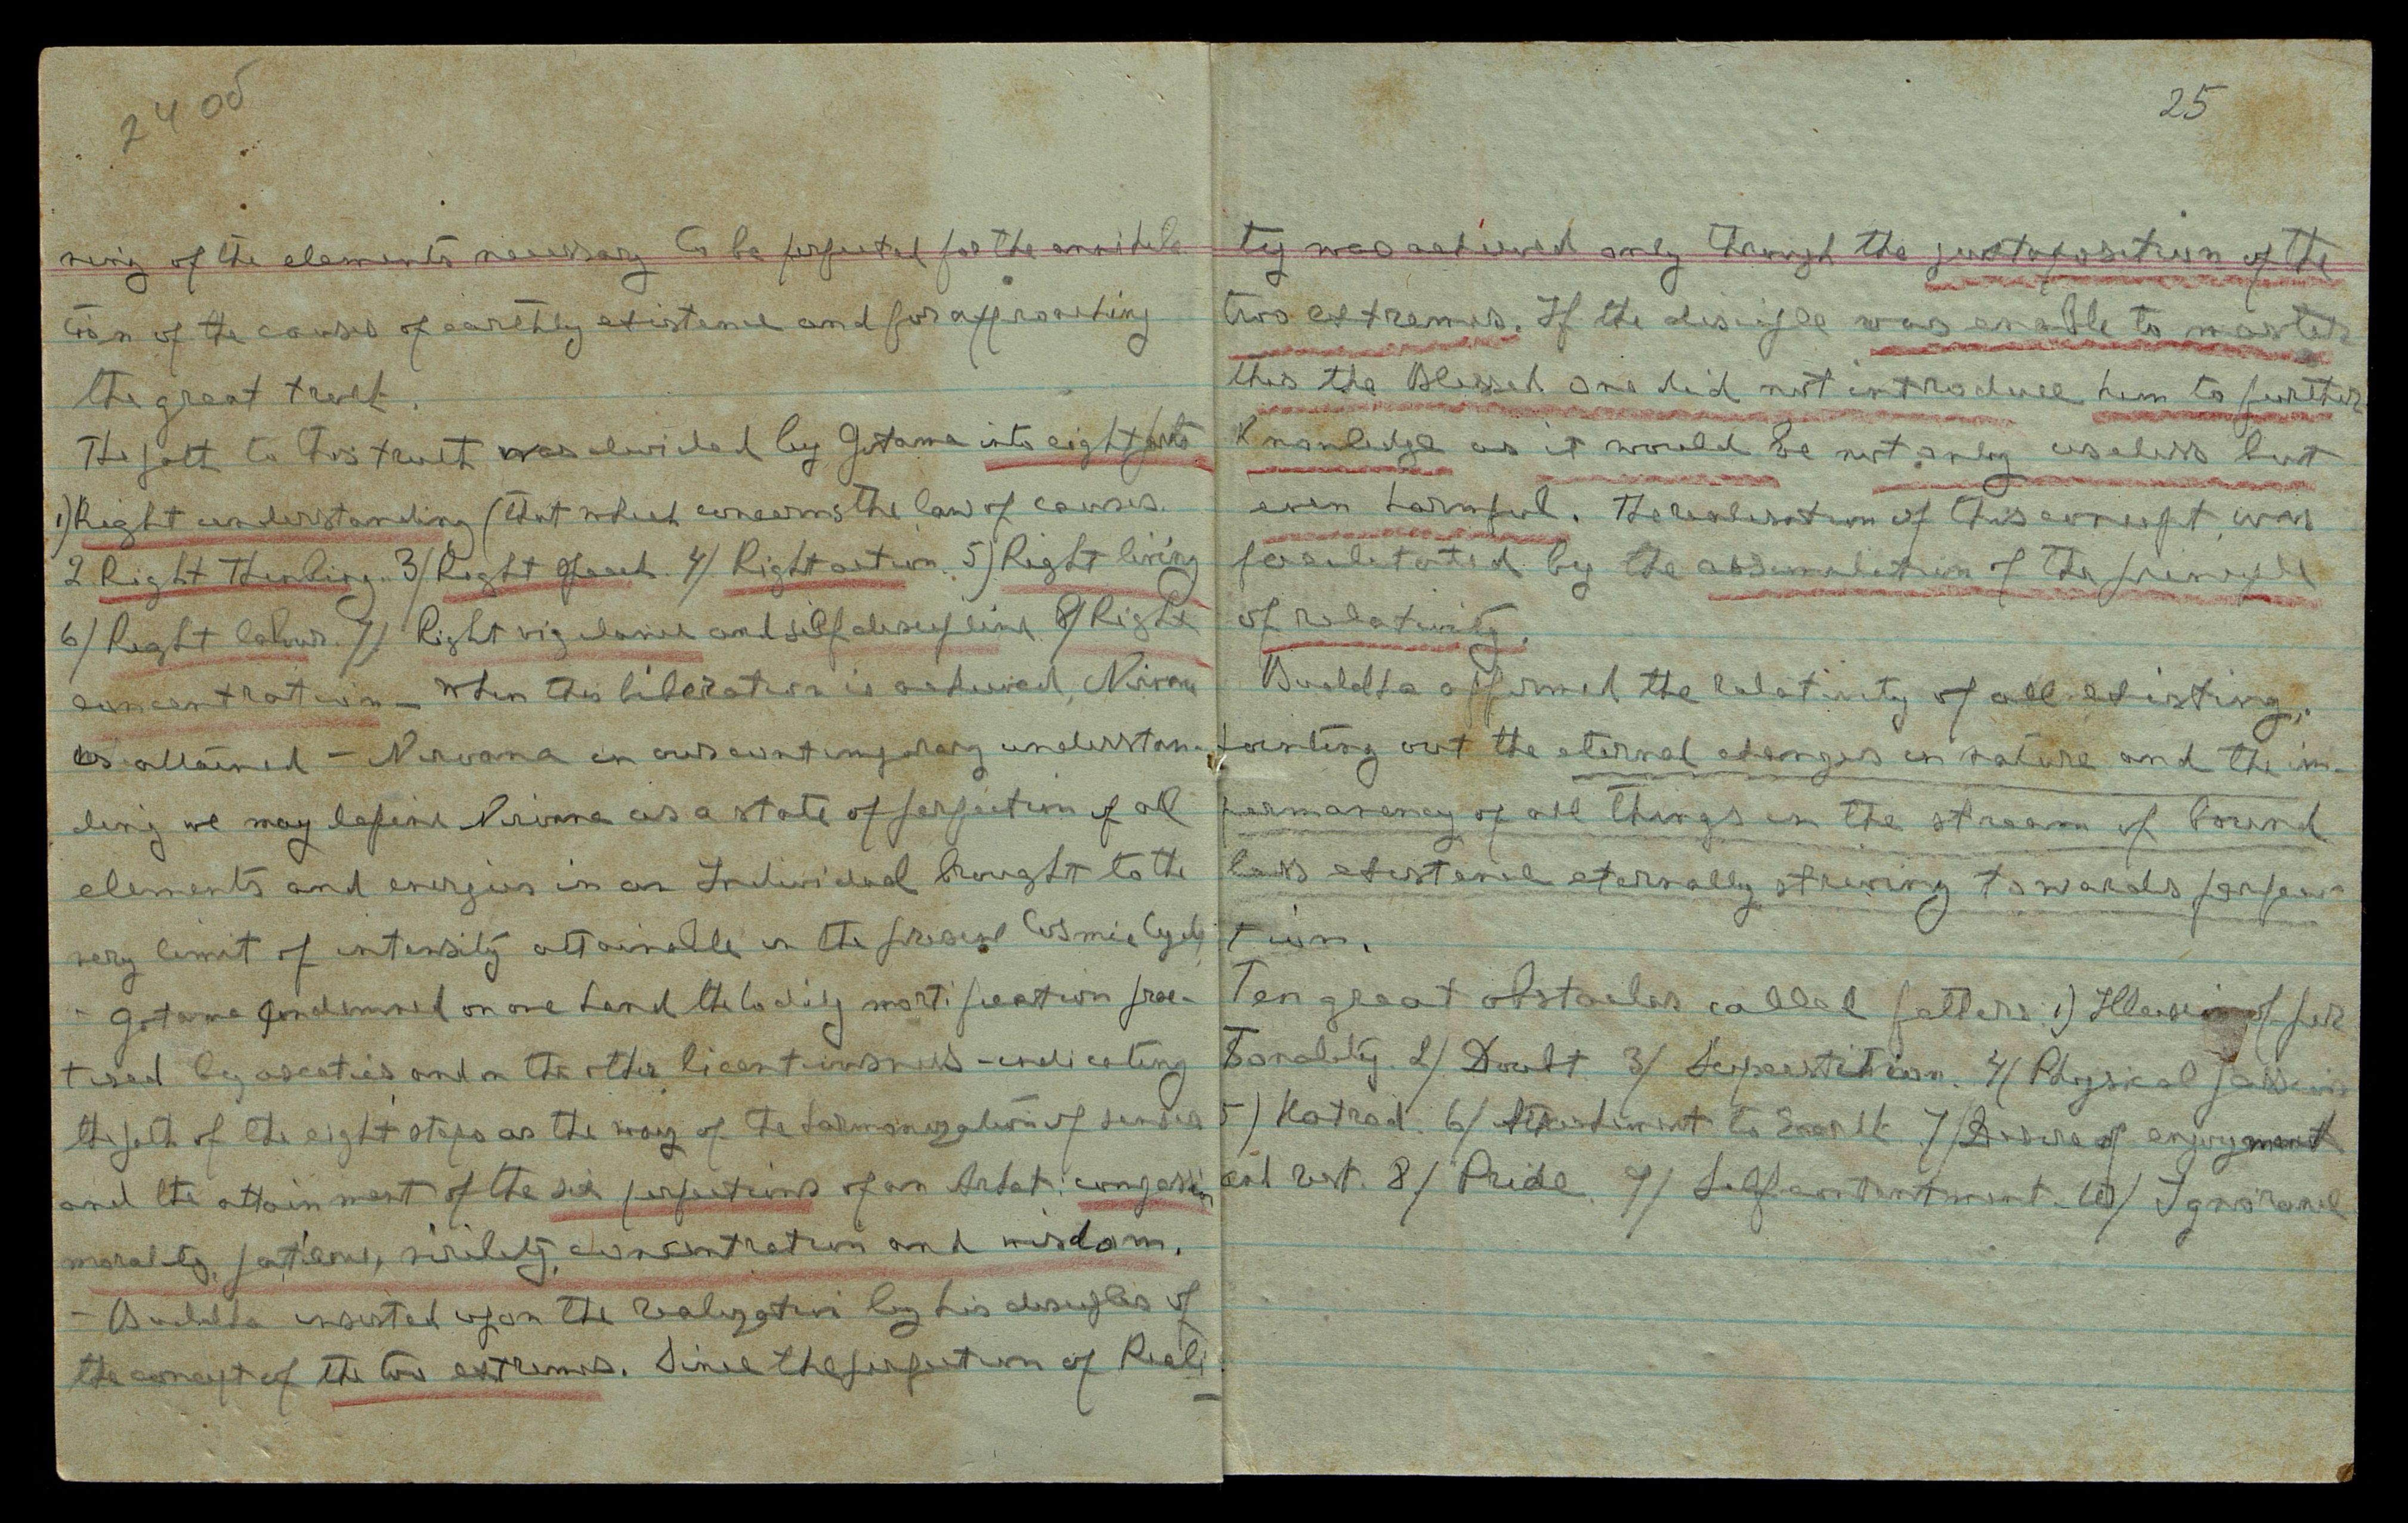 24 об
ning of the elements necessary to be perfected for the annihila
tion of the causes of earthly existence and for approaching
the great truth.
The path to this truth was divided by Gotama into eight parts
1) Right understanding (that which concerns the law of causes.
2 Right thinking. 3/ Right speech. 4/ Right action. 5) Right living
6/ Right labour. 7/ Right vigilance and self discipline. 8/ Right
concentration – When this liberation is achieved, Nirvana
is attained – Nirvana in our contemporary understan-
ding we may define Nirvana as a state of perfection of all
elements and energies in an Individual brought to the
very limit of intensity attainable in the present Cosmic Cycle
- Gotama condemned on one hand the bodily mortification prac-
tised by ascetics and on the other licentiousness – indicating
the path of the eight steps as the way of the harmonization of senses
and the attainment of the six perfections of an Arhat: compassion
morality, patience, virility, concentration and wisdom.
– Buddha insisted upon the realization by his disciples of
the concept of the two extremes. Since the perfection of Reali-
25
ty was achieved only through the juxtaposition of the
two extremes. If the disciple was enable to master
this the Blessed one did not introduce him to further
Knowledge as it would be not only useless but
even harmful. The realization of this concept was
facilitated by the assimilation of the principle
of relativity.
Buddha affirmed the relativity of all existing,
pointing out the eternal changes in nature and the im-
permanency of all things in the stream of bound
less existence eternally striving towards perfec-
tion.
Ten great obstacles called fetters: 1) Illusion of per
sonality. 2/ Doubt 3/ Superstition. 4/ Physical passions
5) Hatred. 6/ Attachment to Earth 7/ Desire of enjoyment
and rest. 8/ Pride. 9/ Self contentment. 10/ Ignorance